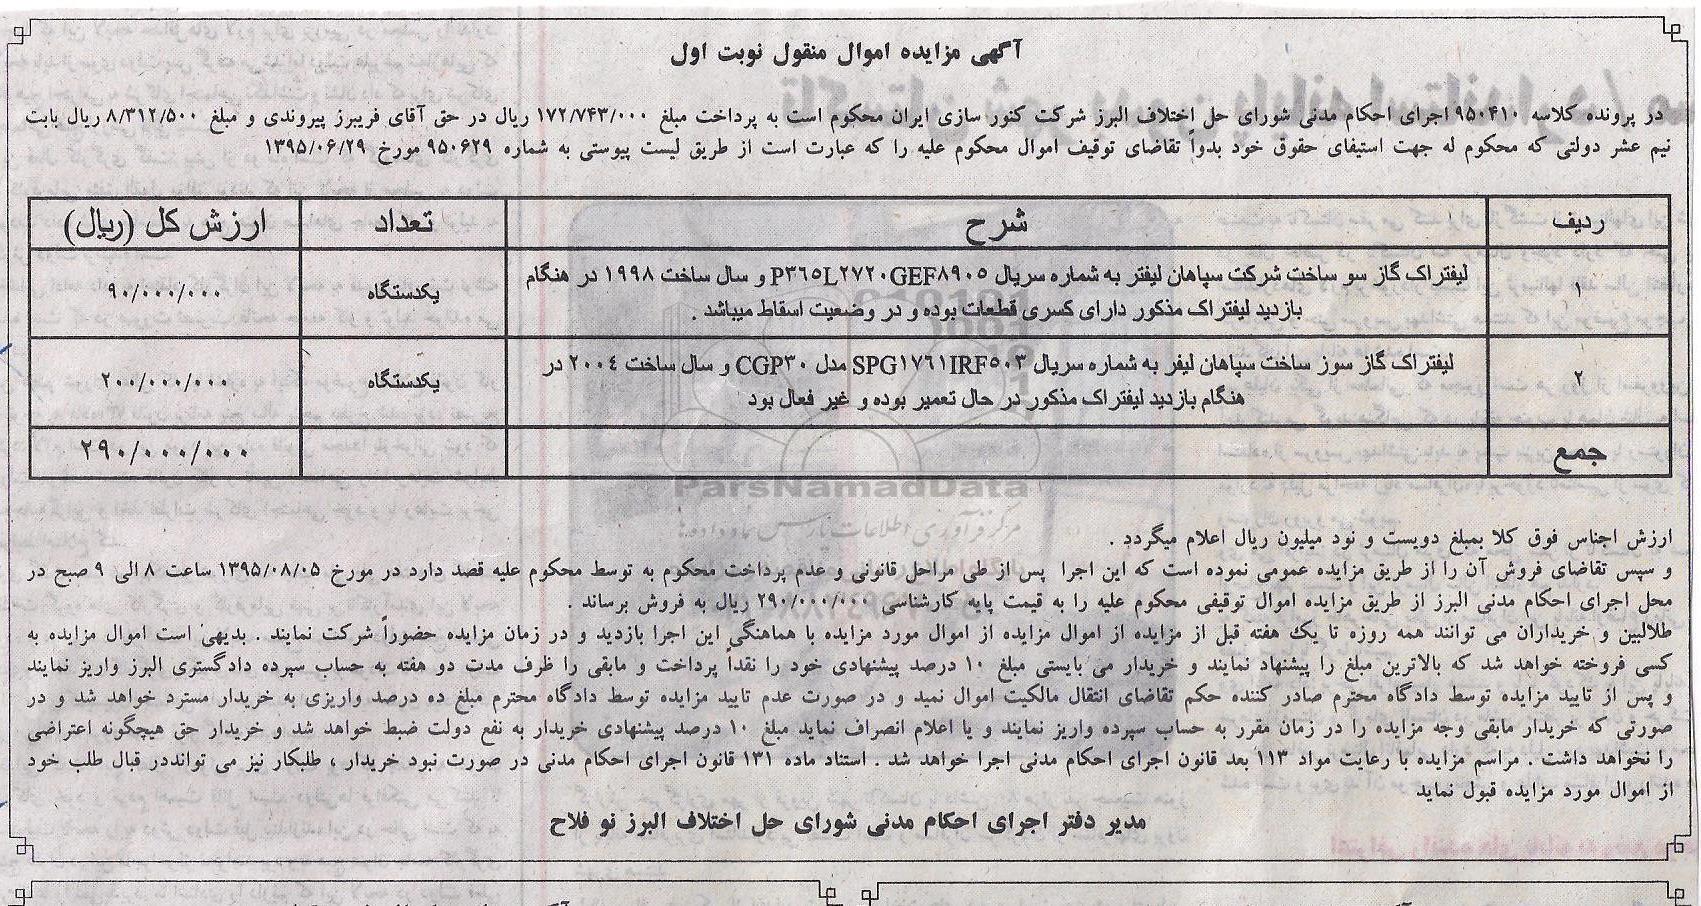 آگهی مزایده اموال منقول نوبت اول
در پرونده کلاسه ۹۵۰۴۱۰ اجرای احکام مدنی شورای حل اختلاف البرز شرکت کنور سازی ایران محکوم است به پرداخت مبلغ ۱۷۲/۷۴۳/۰۰۰ ریال در حق آقای فریبرز پیروندی و مبلغ ۸/۳۱۲/۵۰۰ ریال بابت
نیم عشر دولتی که محکوم له جهت استیفای حقوق خود بدواً تقاضای توقیف اموال محکوم علیه را که عبارت است از طریق لیست پیوستی به شماره ۹۵۰۶۲۹ مورخ ۱۳۹۵/۰۶/۲۹
ردیف شرح تعداد ارزش کل (ریال)
۱ لیفتراک گاز سو ساخت شرکت سپاهان لیفتر به شماره سریال P۳۶۵L۲۷۲۰GEF۸۹۰۵ و سال ساخت ۱۹۹۸ در هنگام یکدستگاه ۹۰/۰۰۰/۰۰۰
بازدید لیفتراک مذکور دارای کسری قطعات بوده و در وضعیت اسقاط میباشد .
۲ لیفتراک گاز سوز ساخت سپاهان لیفر به شماره سریال SPG۱۷۶۱IRF۵۰۳ مدل CGP۳۰ و سال ساخت ۲۰۰۴ در یکدستگاه ۲۰۰/۰۰۰/۰۰۰
هنگام بازدید لیفتراک مذکور در حال تعمیر بوده و غیر فعال بود
جمع ۲۹۰/۰۰۰/۰۰۰
ParsNamadData
مرکز فرآوری اطلاعات پارس نماد داده ها
ارزش اجناس فوق کلا بمبلغ دویست و نود میلیون ریال اعلام میگردد .
و سپس تقاضای فروش آن را از طریق مزایده عمومی نموده است که این اجرا پس از طی مراحل قانونی و عدم پرداخت محکوم به توسط محکوم علیه قصد دارد در مورخ ۱۳۹۵/۰۸/۰۵ ساعت ۸ الی ۹ صبح در
محل اجرای احکام مدنی البرز از طریق مزایده اموال توقیفی محکوم علیه را به قیمت پایه کارشناسی ۲۹۰/۰۰۰/۰۰۰ ریال به فروش برساند .
طلالبین و خریداران می توانند همه روزه تا یک هفته قبل از مزایده از اموال مزایده از اموال مورد مزایده با هماهنگی این اجرا بازدید و در زمان مزایده حضوراً شرکت نمایند . بدیهی است اموال مزایده به
کسی فروخته خواهد شد که بالاترین مبلغ را پیشنهاد نمایند و خریدار می بایستی مبلغ ۱۰ درصد پیشنهادی خود را نقداً پرداخت و مابقی را ظرف مدت دو هفته به حساب سپرده دادگستری البرز واریز نمایند
و پس از تایید مزایده توسط دادگاه محترم صادر کننده حکم تقاضای انتقال مالکیت اموال نمید و در صورت عدم تایید مزایده توسط دادگاه محترم مبلغ ده درصد واریزی به خریدار مسترد خواهد شد و در
صورتی که خریدار مابقی وجه مزایده را در زمان مقرر به حساب سپرده واریز نمایند و یا اعلام انصراف نماید مبلغ ۱۰ درصد پیشنهادی خریدار به نفع دولت ضبط خواهد شد و خریدار حق هیچگونه اعتراضی
را نخواهد داشت . مراسم مزایده با رعایت مواد ۱۱۳ بعد قانون اجرای احکام مدنی اجرا خواهد شد . استناد ماده ۱۳۱ قانون اجرای احکام مدنی در صورت نبود خریدار ، طلبکار نیز می تواند در قبال طلب خود
از اموال مورد مزایده قبول نماید
مدیر دفتر اجرای احکام مدنی شورای حل اختلاف البرز نو فلاح